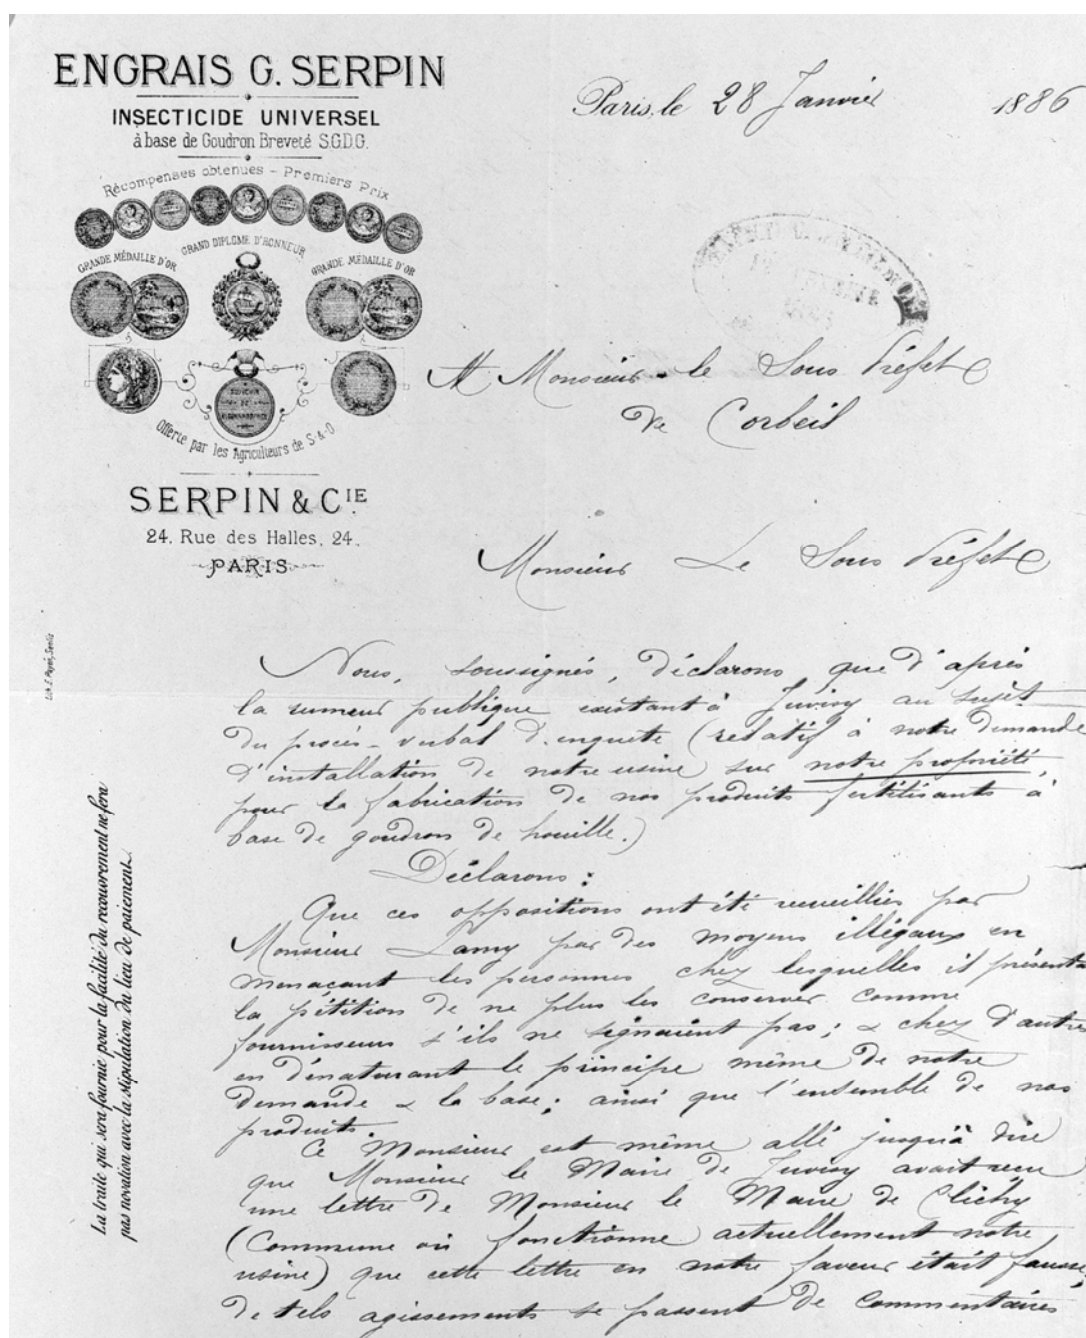 ENGRAIS G. SERPIN
INSECTICIDE UNIVERSEL
à base de Goudron Breveté S.G.D.G.
Récompenses obtenues - Premiers Prix
GRANDE MÉDAILLE D'OR
GRAND DIPLOME D'HONNEUR
GRANDE MÉDAILLE D'OR
SOUVENIR
DE
Offerte par les Agriculteurs de S-&-O
SERPIN & CIE
24, Rue des Halles, 24.
PARIS
Paris, le 28 Janvier 1886
A Monsieur le Sous Préfet
de Corbeil
Monsieur Le Sous Préfet
Nous, soussignés, déclarons que d'après
la rumeur publique existant à Juvisy au sujet
du procès-verbal d'enquete (relatif à notre demande
d'installation de notre usine sur notre propriété
pour la fabrication de nos produits fertilisants à
base de goudron de houille.)
Déclarons :
Que ces oppositions ont été recueillies par
Monsieur Lamy par des moyens illégaux en
menaçant les personnes chez lesquelles il présenta
la pétition de ne plus les conserver comme
fournisseurs s'ils ne signaient pas ; & chez d'autres
en dénaturant le principe même de notre
demande & la base ; ainsi que l'ensemble de nos
produits.
Ce Monsieur est même allé jusqu'à dire
que Monsieur le Maire de Juvisy avait reçu
une lettre de Monsieur le Maire de Clichy
(Commune où fonctionne actuellement notre
usine) que cette lettre en notre faveur était fausse,
de tels agissements se passent de commentaires
La traite qui sera fournie pour la facilité du recouvrement ne fera
pas novation avec la stipulation du lieu de paiement.